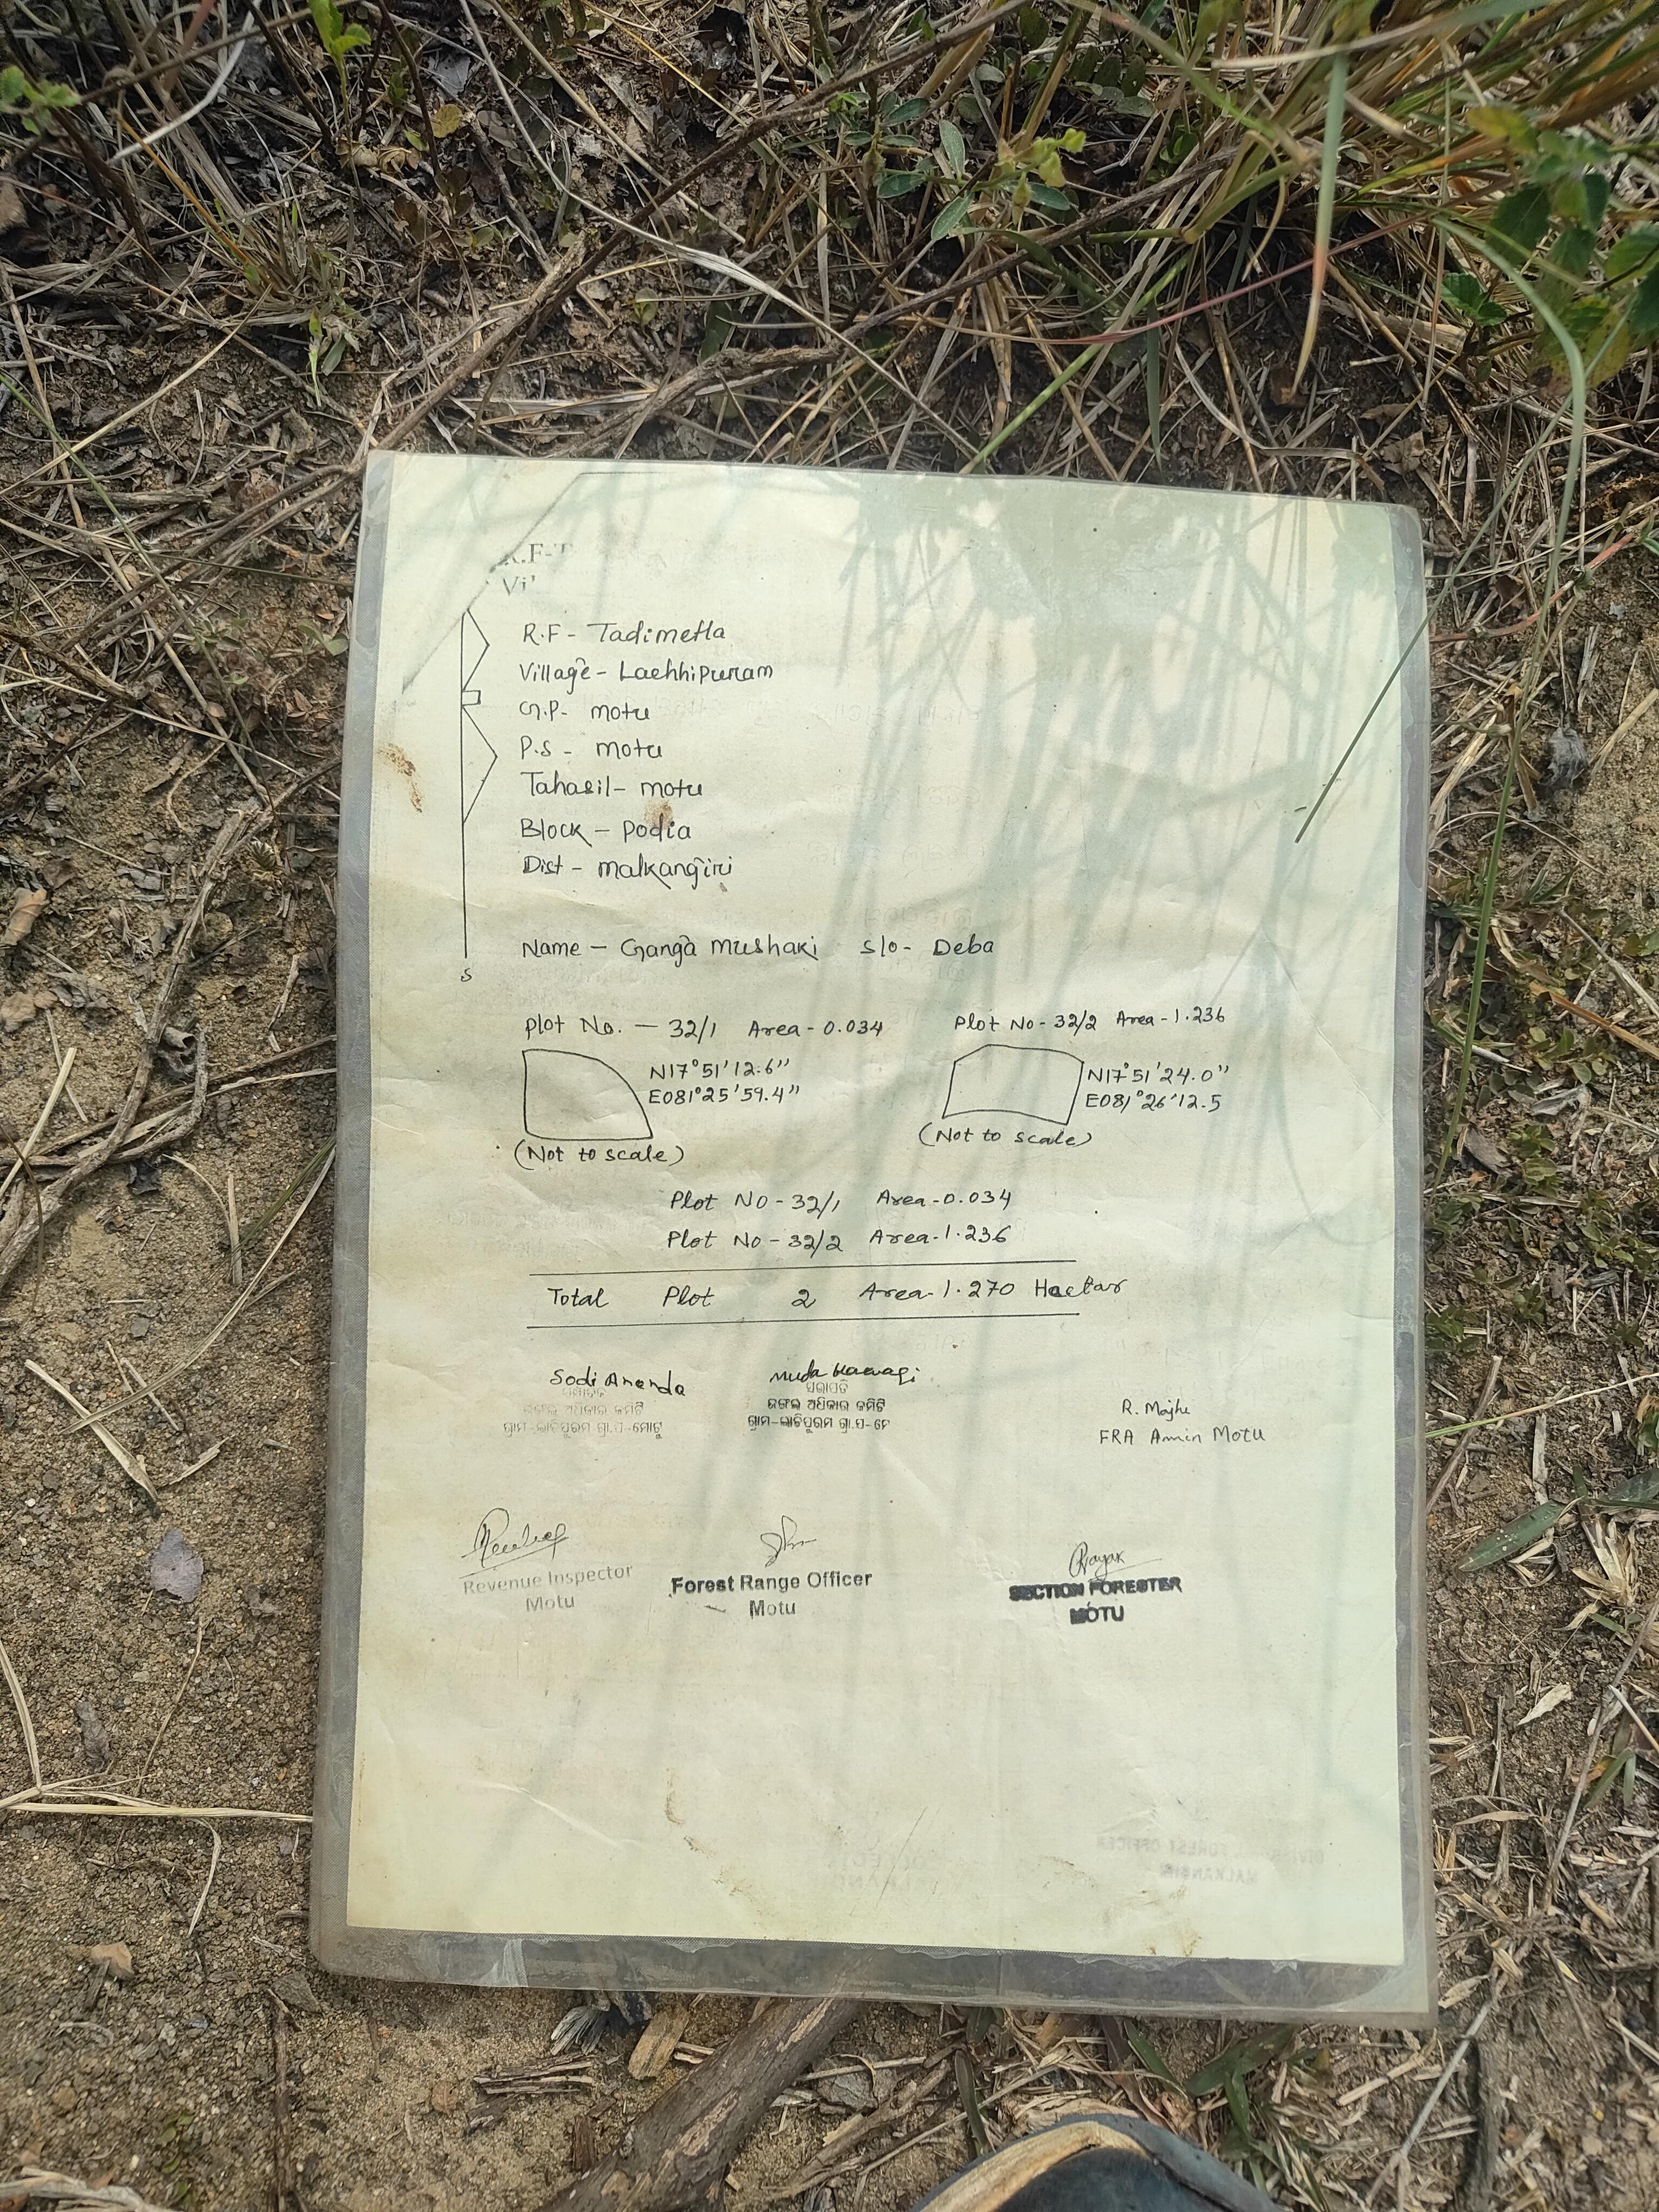 R.F-T
Vi
R.F - Tadimetla
Village - Lachhipuram
G.P - motu
P.S - motu
Tahasil - motu
Block - Podia
Dist - malkangiri
S
Name - Ganga Mushaki S/o - Deba
Plot No. - 32/1 Area - 0.034
Plot No - 32/2 Area - 1.236
N17°51'12.6"
E081°25'59.4"
(Not to scale)
N17°51'24.0"
E081°26'12.5
(Not to scale)
Plot No - 32/1 Area - 0.034
Plot No - 32/2 Area - 1.236
Total Plot 2 Area - 1.270 Hactar
Sodi Ananda
ଜଙ୍ଗଲ ଅଧିକାର କମିଟି
ଗ୍ରାମ-ଲାଚିପୁରମ ଗ୍ରା.ପ-ମୋଟୁ
Muda
ସଭାପତି
ଜଙ୍ଗଲ ଅଧିକାର କମିଟି
ଗ୍ରାମ-ଲାଚିପୁରମ ଗ୍ରା.ପ-ମେ
R. Majhi
FRA Amin Motu
Revenue Inspector
Motu
Forest Range Officer
Motu
Nayak
SECTION FORESTER
MOTU